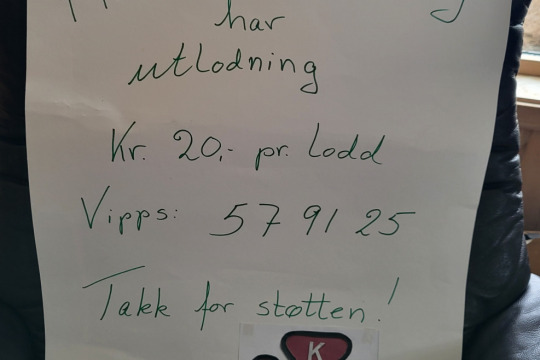 har
utlodning
Kr. 20,- pr. lodd
Vipps: 57 91 25
Takk for støtten!
K